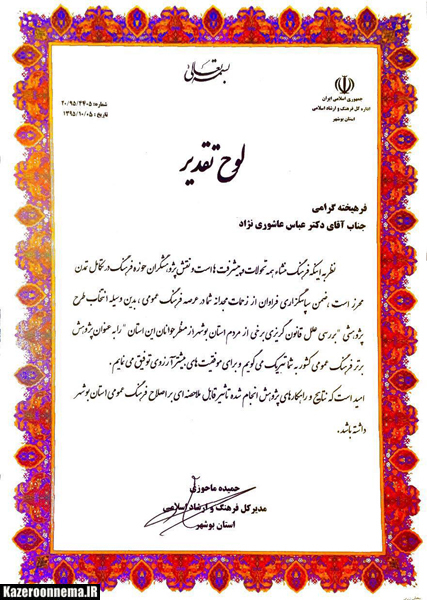 بسمه تعالی
جمهوری اسلامی ایران
اداره کل فرهنگ و ارشاد اسلامی
استان بوشهر
شماره: ۲۰/۹۵/۲۴۰۵
تاریخ: ۱۳۹۵/۱۰/۰۵
لوح تقدیر
فرهیخته گرامی
جناب آقای دکتر عباس عاشوری نژاد
نظر به اینکه فرهنگ منشاء همه تحولات و پیشرفت هاست و نقش پژوهشگران حوزه فرهنگ در تکامل تمدن
محرز است، ضمن سپاسگزاری فراوان از زحمات مجدانه شما در عرصه فرهنگ عمومی، بدین وسیله انتخاب طرح
پژوهشی "بررسی علل قانون گریزی برخی از مردم استان بوشهر از منظر جوانان این استان" را به عنوان پژوهش
برتر فرهنگ عمومی کشور به شما تبریک می گویم و برای موفقیت های بیشتر آرزوی توفیق می نمایم.
امید است که نتایج و راهکارهای پژوهش انجام شده تاثیر قابل ملاحضه ای بر اصلاح فرهنگ عمومی استان بوشهر
داشته باشد.
حمیده ماحوزی
مدیرکل فرهنگ و ارشاد اسلامی
استان بوشهر
Kazeroonnema.IR